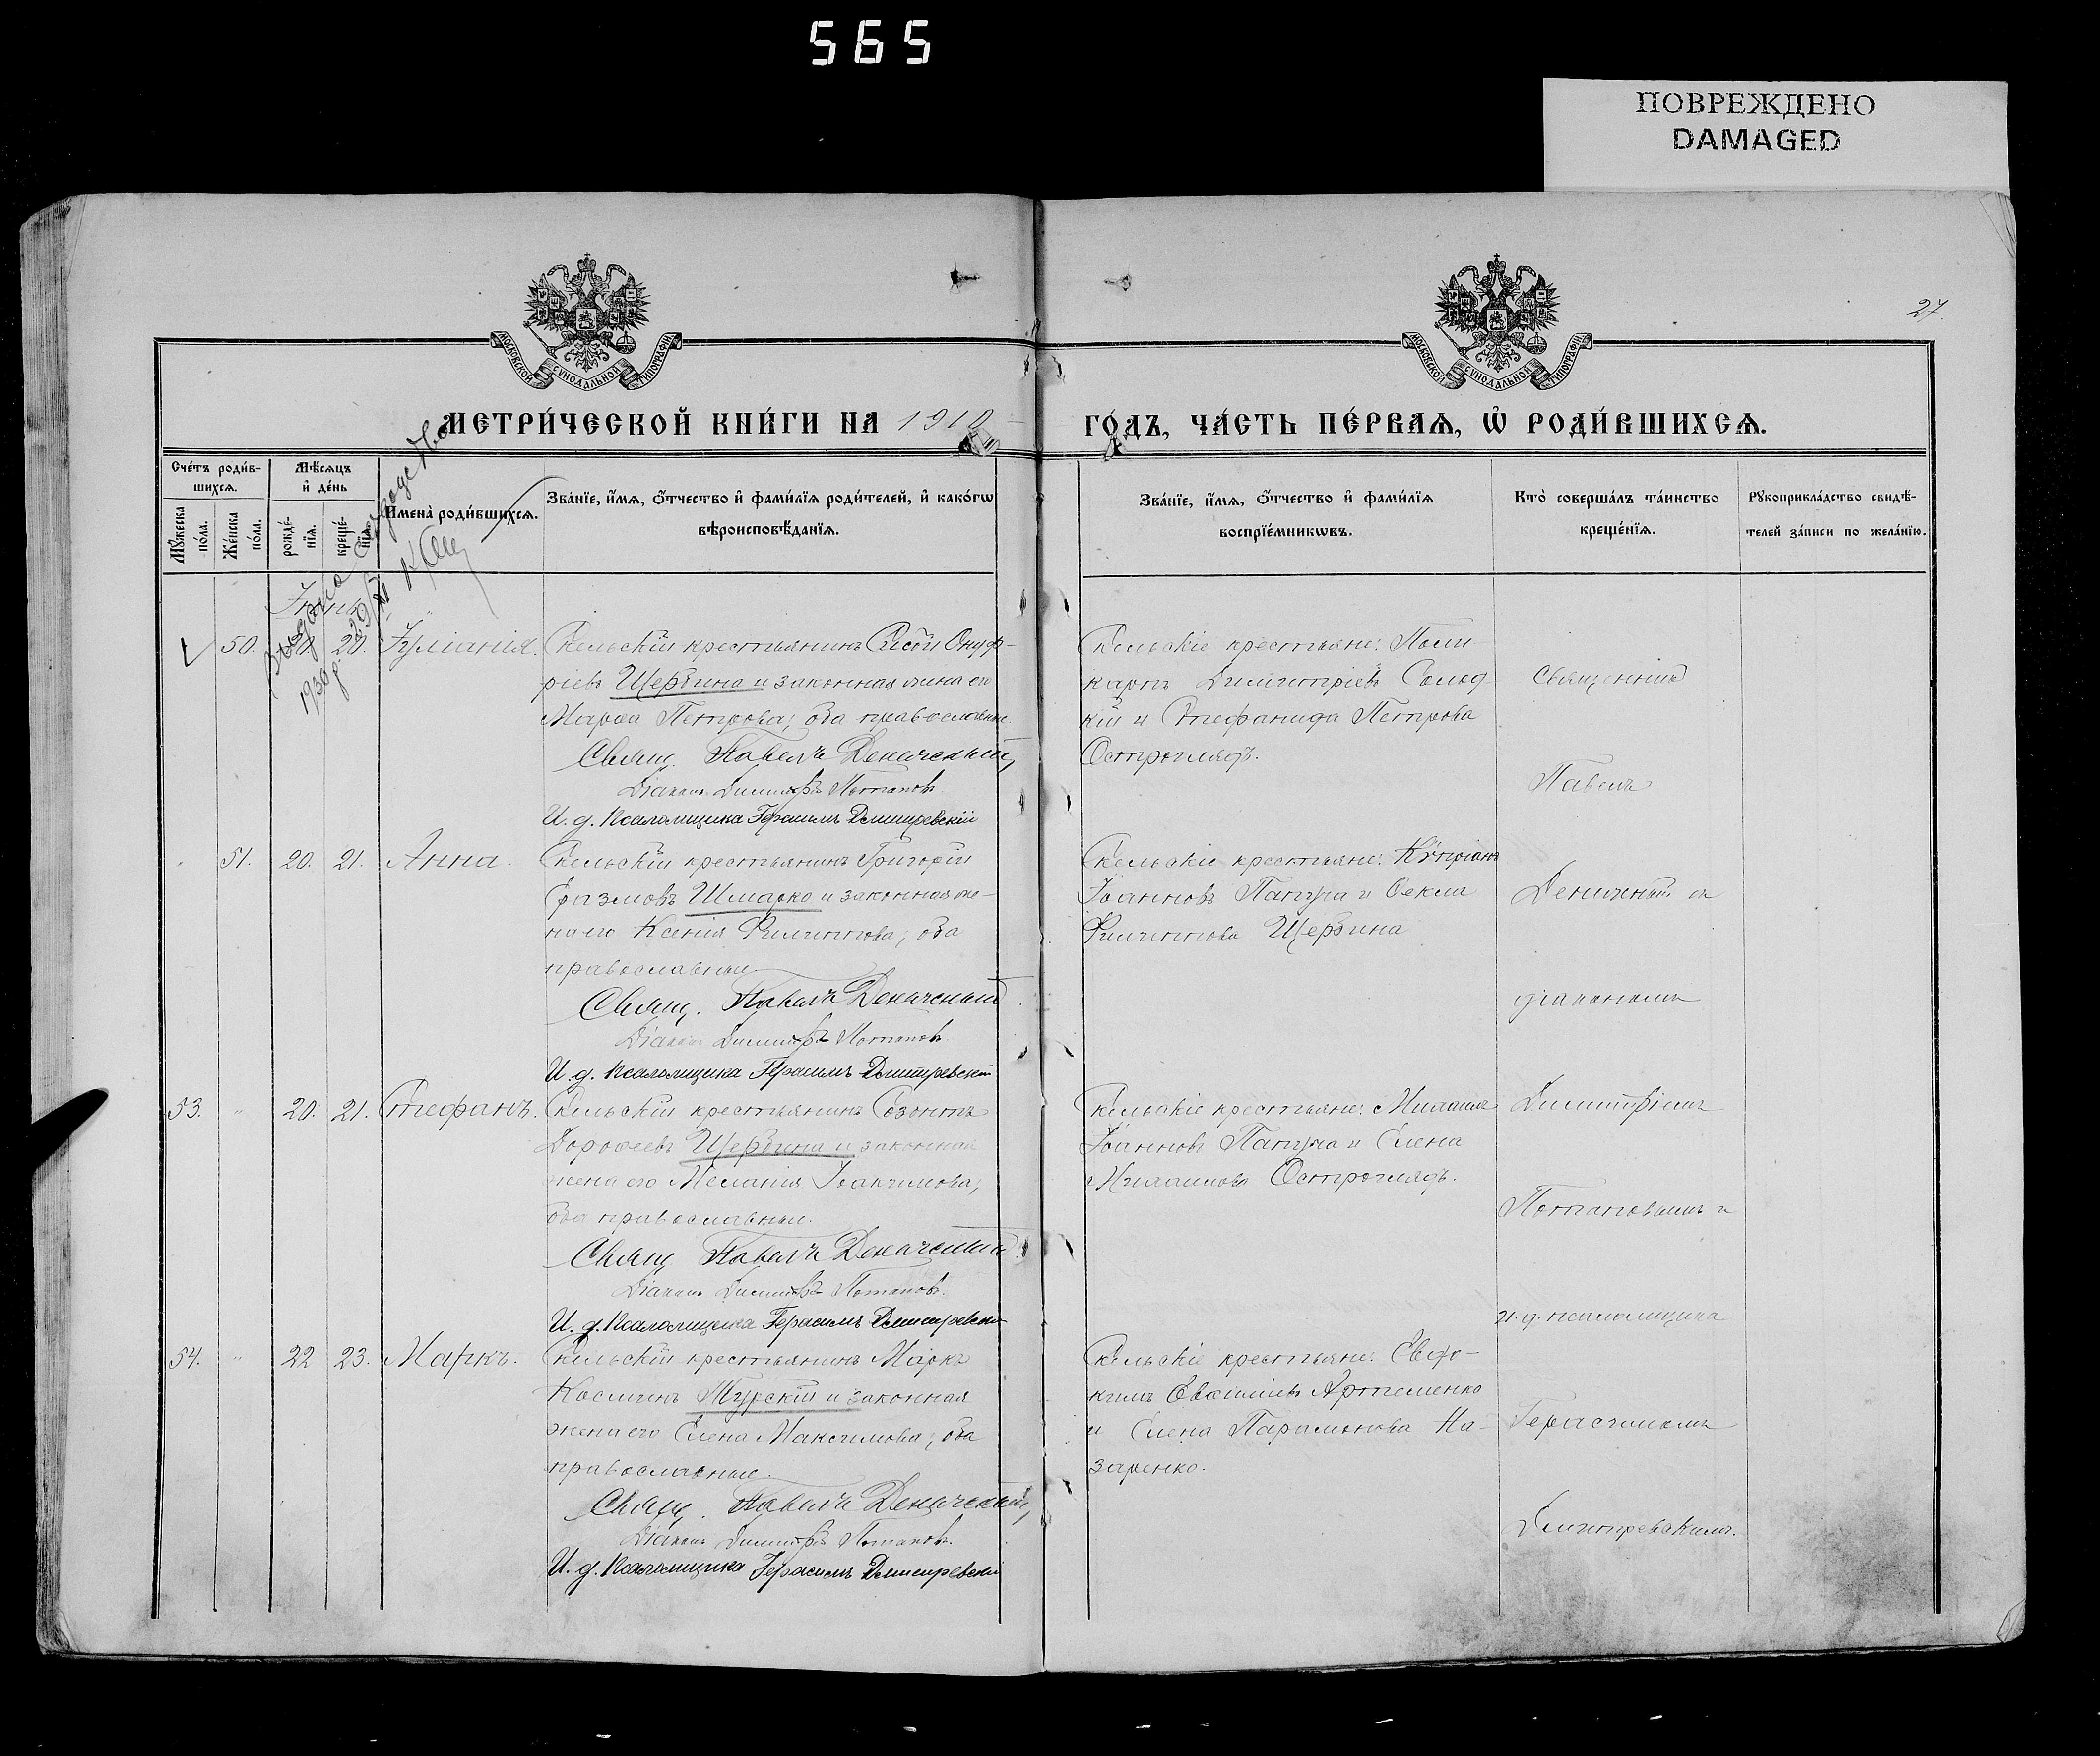 565
ПОВРЕЖДЕНО
DAMAGED
27.
МОСКОВСКОЙ СѴНОДАЛЬНОЙ ТИПОГРАФІИ
МОСКОВСКОЙ СѴНОДАЛЬНОЙ ТИПОГРАФІИ
МЕТРИ́ЧЕСКОЙ КНИ́ГИ НА 1910
ГО́ДЪ, ЧА́СТЬ ПЕ́РВАѦ, Ѡ҆ РОДИ́ВШИХСѦ.
Сче́тъ роди́в-
шихсѧ.
Мꙋ́жеска по́ла.
Же́нска по́ла.
Мѣ́сѧцъ
и҆ де́нь
рожде́-
нїѧ.
креще́-
нїѧ.
И҆мена̀ роди́вшихсѧ.
Зва́нїе, и҆́мѧ, ѻ҆́тчество и҆ фами́лїѧ роди́телей, и҆ како́гѡ
вѣроисповѣ́данїѧ.
Зва́нїе, и҆́мѧ, ѻ҆́тчество и҆ фами́лїѧ
воспрїе́мникѡвъ.
Кто̀ соверша́лъ та́инство
креще́нїѧ.
Рꙋкоприкла́дство свидѣ́-
телей за́писи по жела́нїю.
1930 г.
50. 20. Іуліанія.
Скельскій крестьянинъ Сисой Онуф-
ріевъ Щербина и законная жена его
Марѳа Петрова; оба православные.
Свящ. Павелъ Демяческій
Діаконъ Димитрій Потаповъ
И. д. Псаломщика Герасимъ Дмитревскій
Скельскіе крестьяне: Поли
карпъ Димитріевъ Солод-
кій и Стефанида Петрова
Остроглядъ.
Священникъ
Павелъ
51. 20. 21. Анна.
Скельскій крестьянинъ Григорій
Еразмовъ Шмарко и законная же-
на его Ксенія Филиппова; оба
православные.
Свящ. Павелъ
Діаконъ Димитрій Потаповъ
И. д. Псаломщика Герасимъ Дмитревскій
Скельскіе крестьяне: Кѵпріанъ
Іоанновъ Папуча и Ѳекла
Филиппова Щербина
діакономъ
53. " 20. 21. Стефанъ.
Скельскій крестьянинъ Созонтъ
Дороѳеевъ Щербина и законная
жена его Меланія Іоакимова;
оба православные.
Свящ. Павелъ
Діаконъ Димитрій Потаповъ.
И. д. Псаломщика Герасимъ Дмитревскій
Скельскіе крестьяне: Михаилъ
Іоанновъ Папуча и Елена
Михаилова Остроглядъ.
Димитріемъ
Потаповымъ и
и. д. псаломщика
54. " 22 23. Маркъ.
Скельскій крестьянинъ Маркъ
Косминъ Турскій и законная
жена его Елена Максимова; оба
православные.
Свящ. Павелъ
Діаконъ Димитрій Потаповъ.
И. д. Псаломщика Герасимъ Дмитревскій
Скельскіе крестьяне: Евдо-
кимъ Артеменко
и Елена Парамонова На-
заренко.
Герасимомъ
Дмитревскимъ.